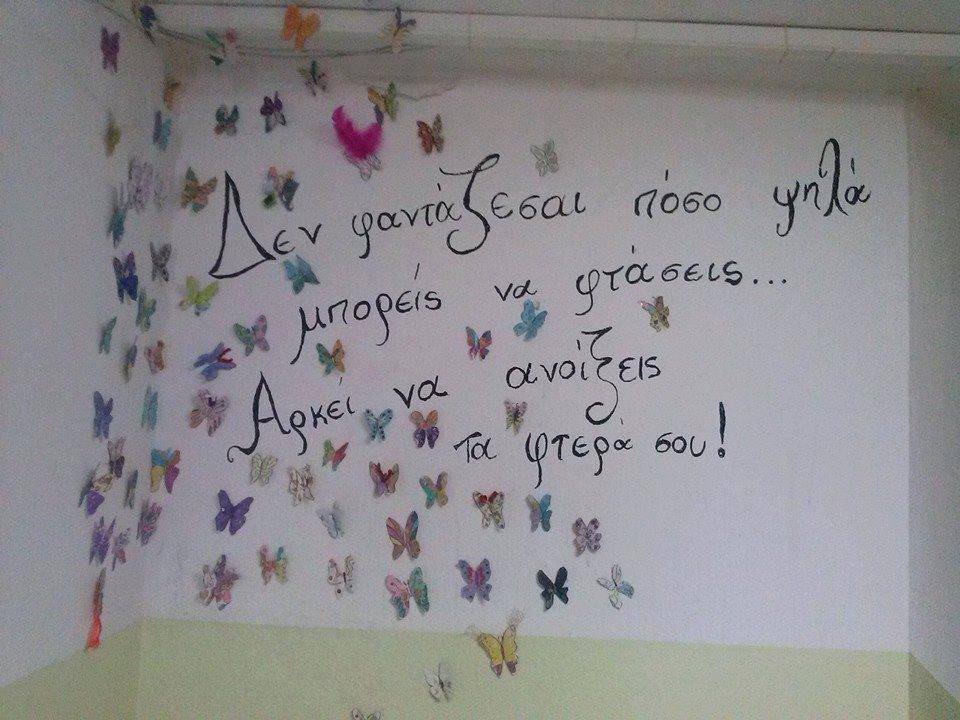 Δεν φαντάζεσαι πόσο ψηλά
μπορείς να φτάσεις...
Αρκεί να ανοίξεις
τα φτερά σου!